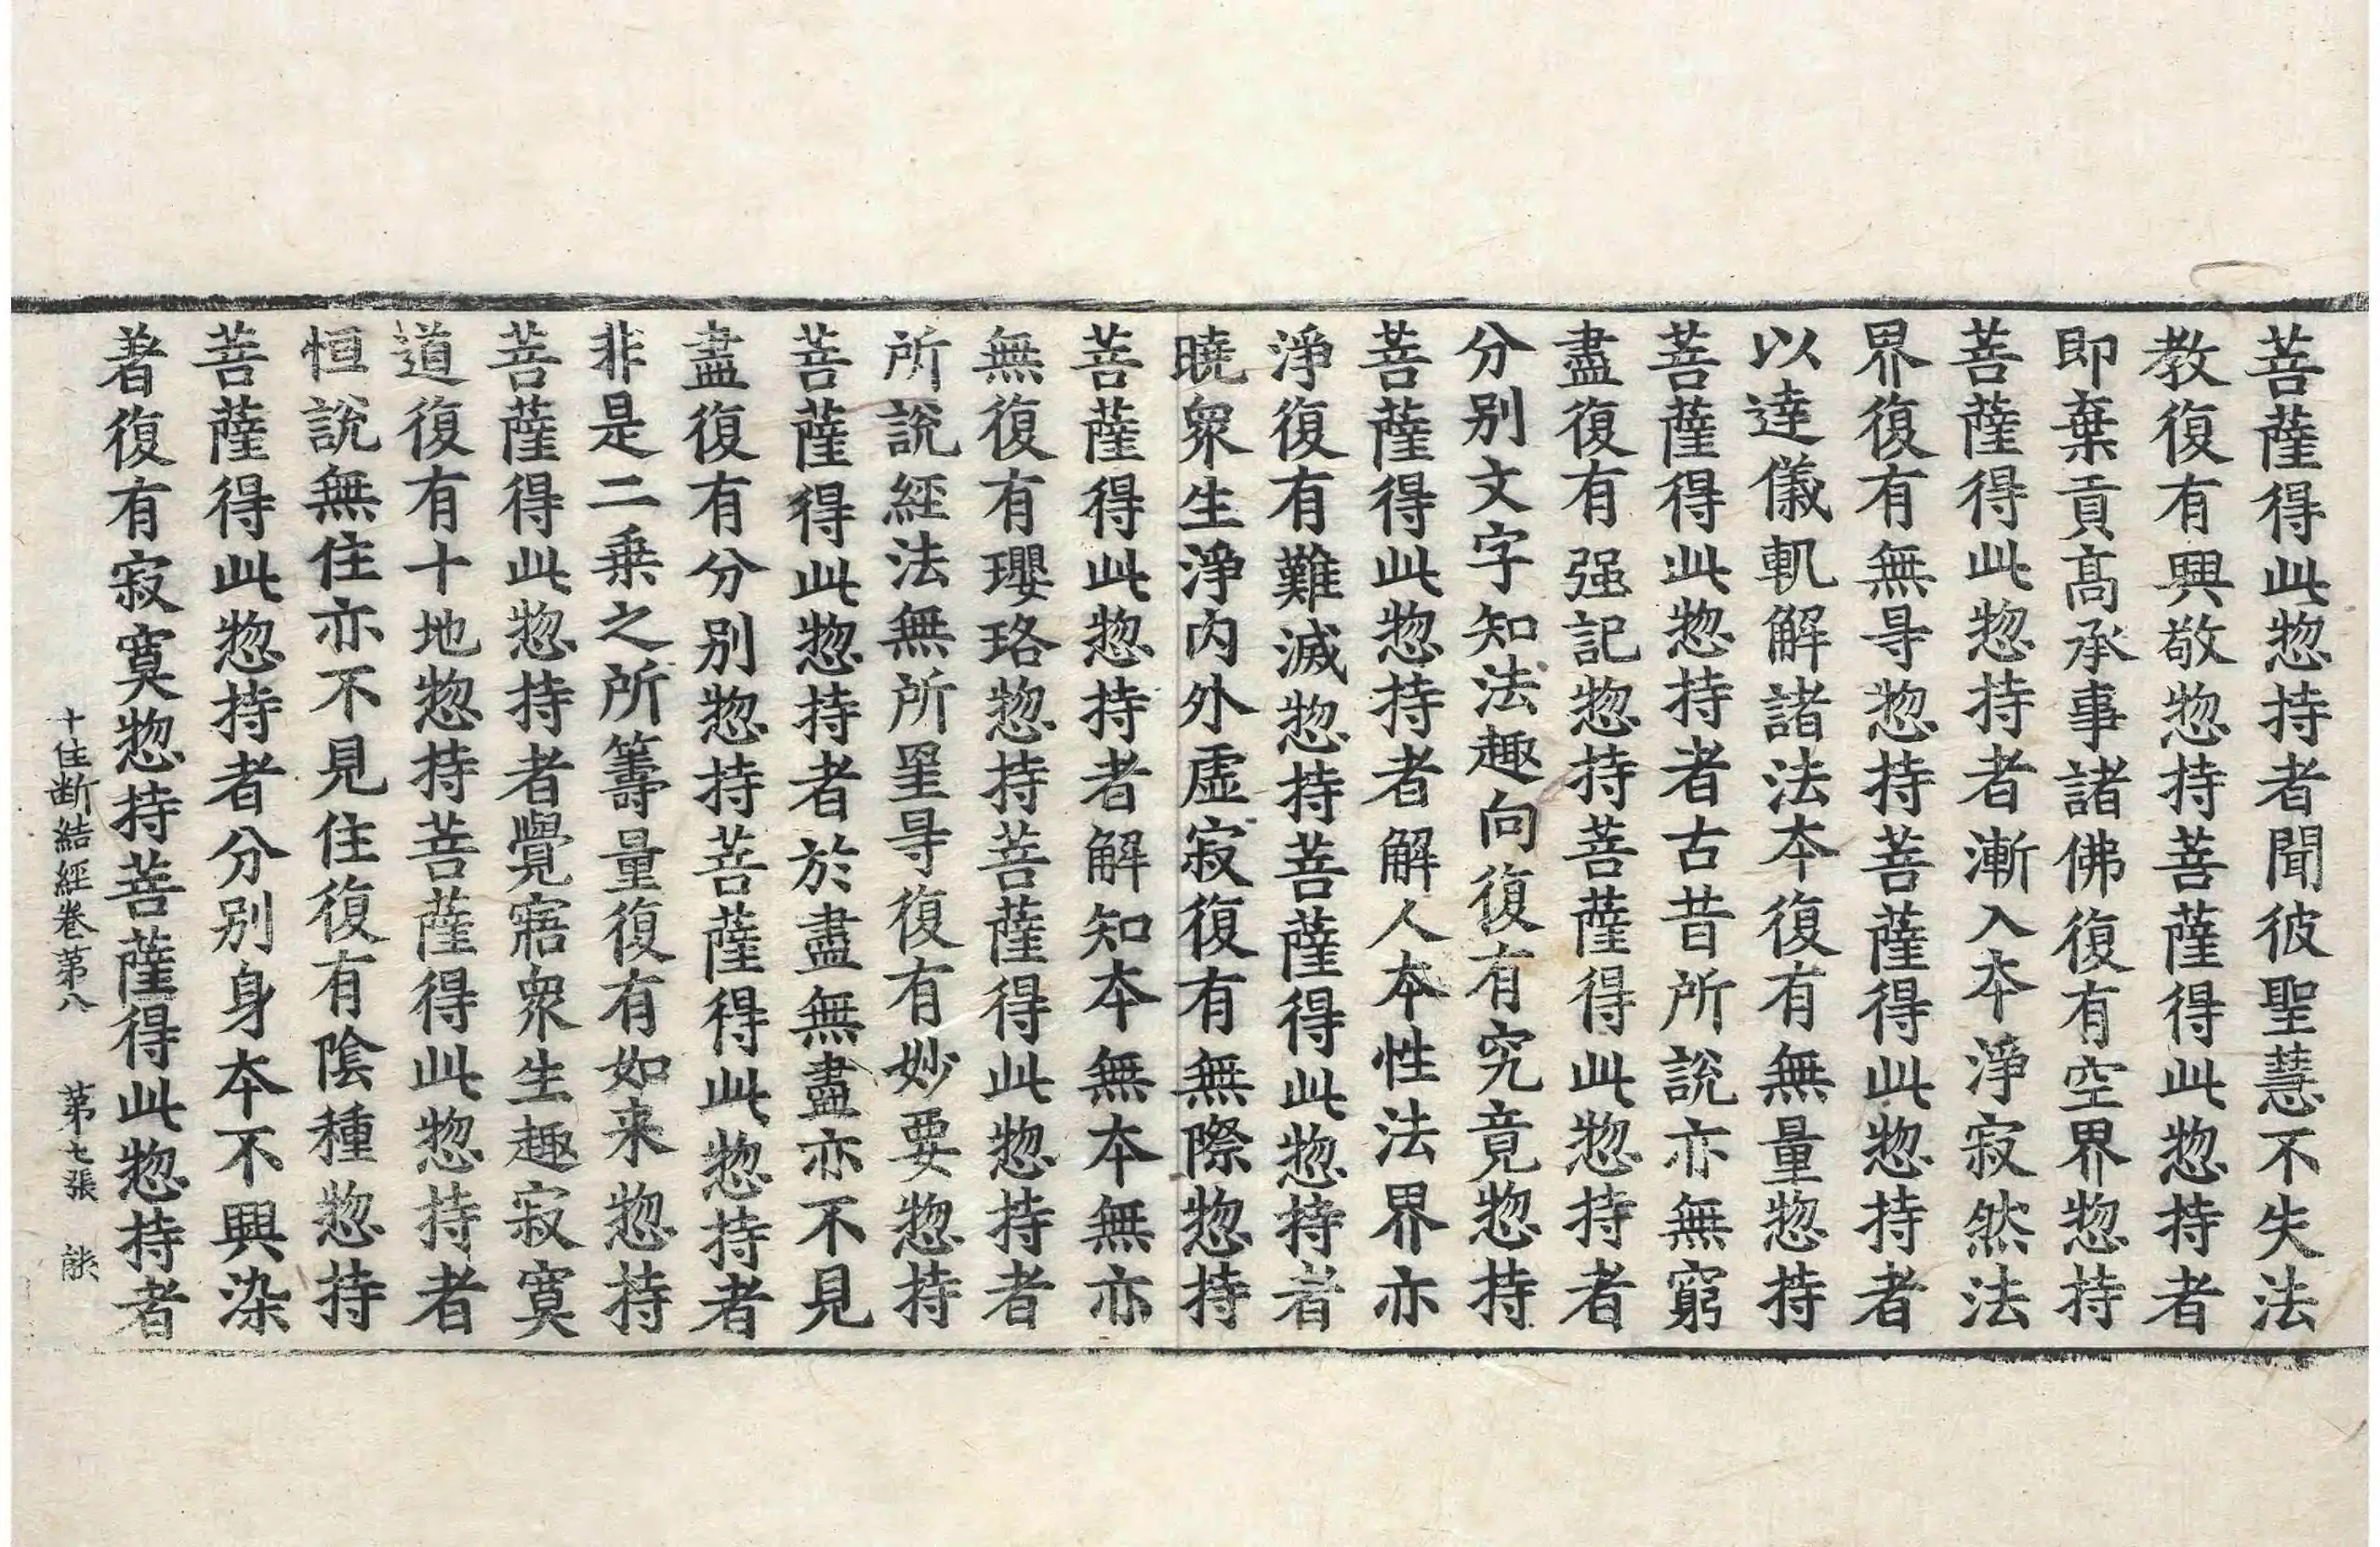 菩薩得此惣持者聞彼聖慧不失法
教復有興敬惣持菩薩得此惣持者
即棄貢髙承事諸佛復有空界惣持
菩薩得此惣持者漸入本淨寂然法
界復有無㝵惣持菩薩得此惣持者
以達儀軌解諸法本復有無量惣持
菩薩得此惣持者古昔所說亦無窮
盡復有强記惣持菩薩得此惣持者
分別文字知法趣向復有究竟惣持
菩薩得此惣持者解人本性法界亦
淨復有難滅惣持菩薩得此惣持者
曉衆生淨內外虛寂復有無際惣持
菩薩得此惣持者解知本無本無亦
無復有瓔珞惣持菩薩得此惣持者
所說經法無所罣㝵復有妙要惣持
菩薩得此惣持者於盡無盡亦不見
盡復有分別惣持菩薩得此惣持者
非是二乗之所籌量復有如来惣持
菩薩得此惣持者覺寤衆生趣寂寞
道復有十地惣持菩薩得此惣持者
恒說無住亦不見住復有陰種惣持
菩薩得此惣持者分別身本不興染
著復有寂寞惣持菩薩得此惣持者
十住断結經卷第八 第七張